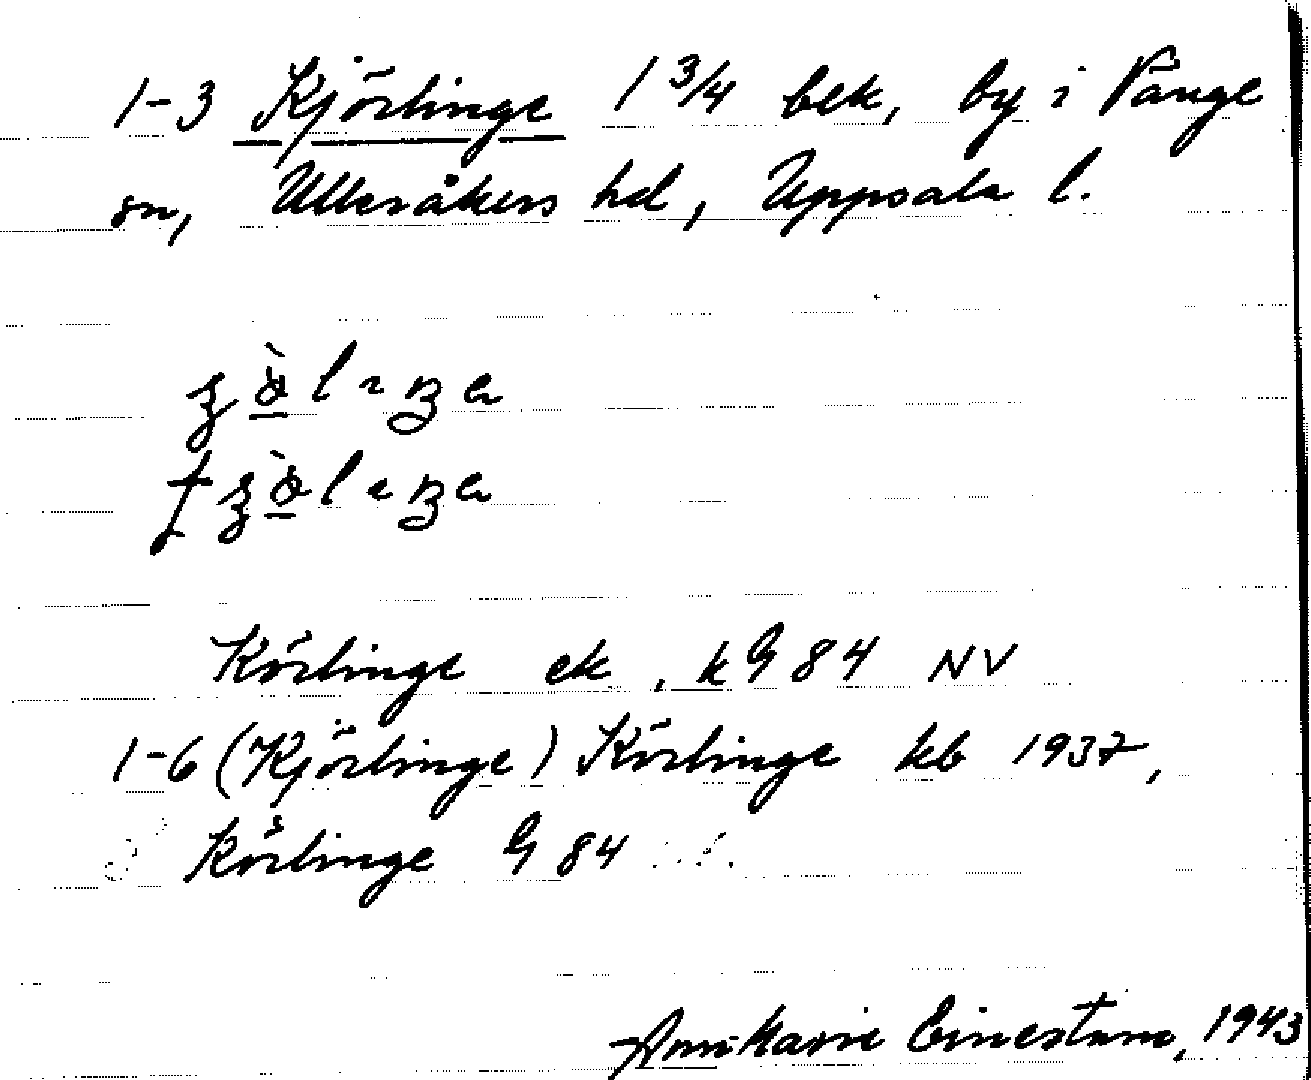 1-3 Kjörlinge 1 3/4 bek, by i Vänge
sn, Ulleråkers hd, Uppsala l.
Körlinge ek, kG 84 NV
1-6 (Kjörlinge) Körlinge kb 1937,
Körlinge G 84
Ann-Marie 1943